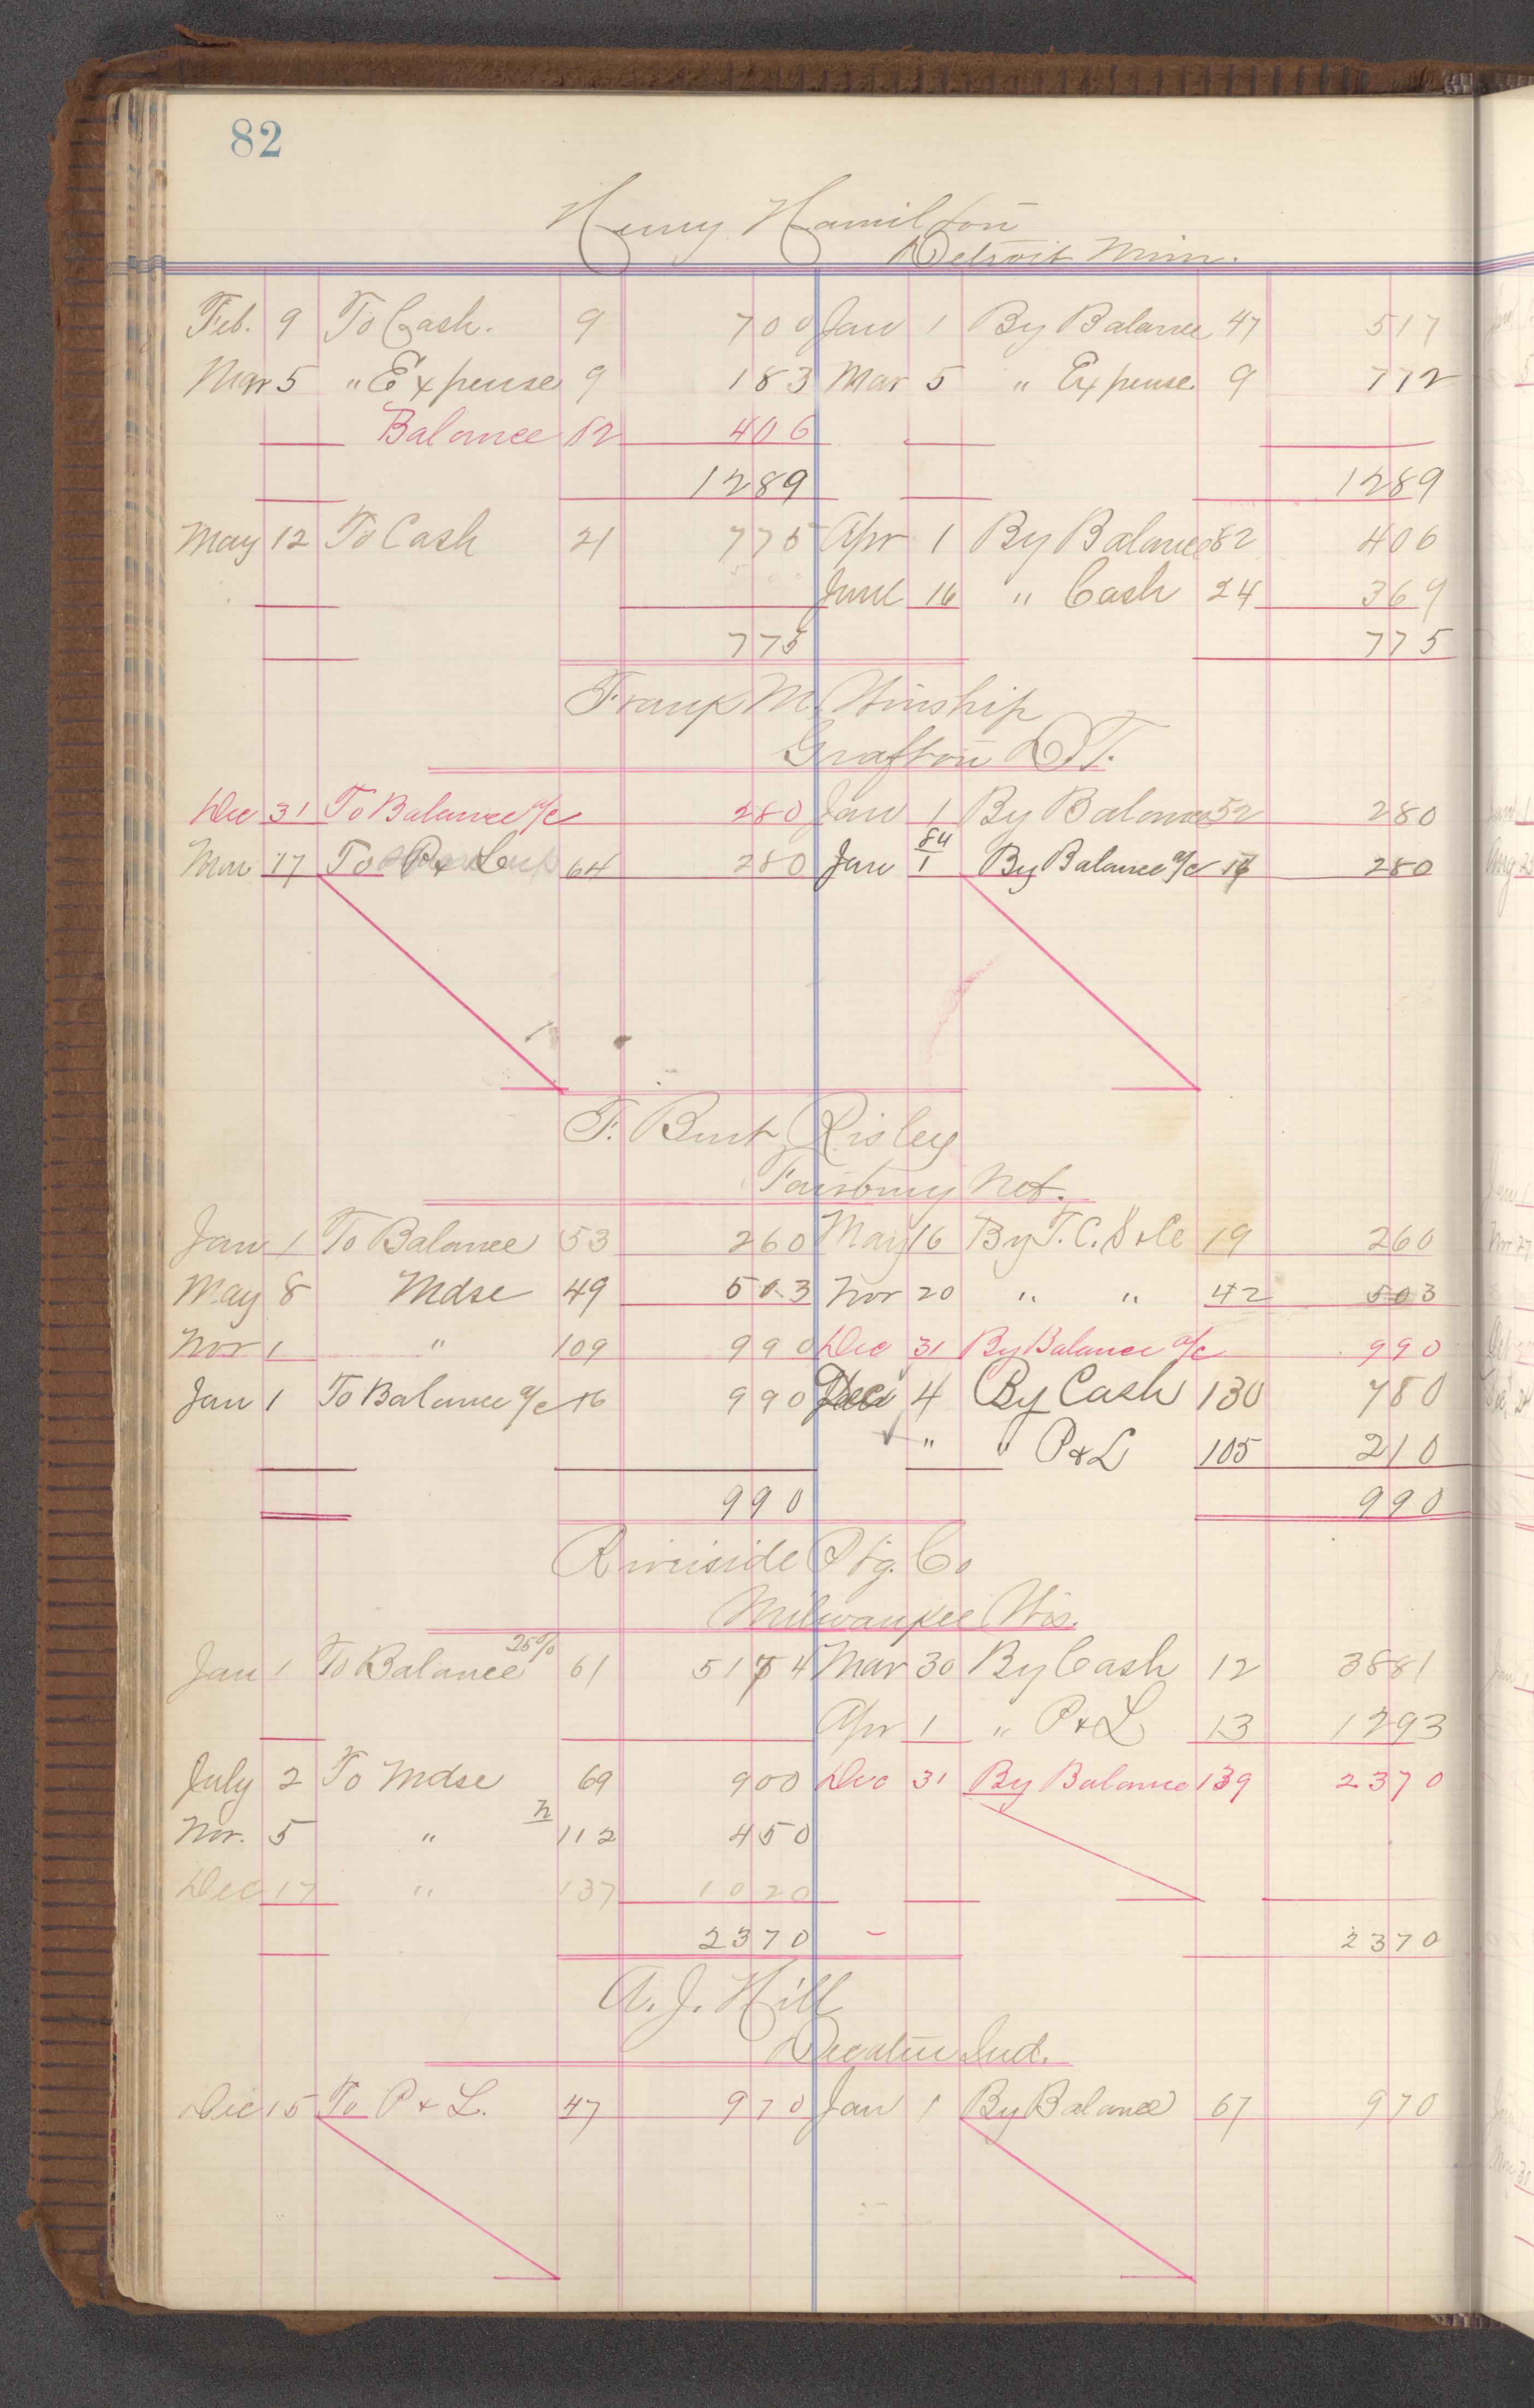 82
Henry Hamilton
Detroit Minn.
Feb. 9 To Cash. 9 700 Jan 1 By Balance 47 517
Mar 5 " Expense 9 183 Mar 5 " Expense 9 772
Balance 82 406
1289 1289
May 12 To Cash 21 775 Apr 1 By Balance 82 406
June 16 " Cash 24 369
775 775
Frank M. Winship
Grafton D.T.
Dec 31 To Balance a/c 280 Jan 1 By Balance 52 280
84
Mar 17 To P & L 64 280 Jan 1 By Balance a/c 280
F. Burt Risley
Fairbury Neb.
Jan 1 To Balance 53 260 May 16 By T. C. S & Co 19 260
May 8 Mdse 49 503 Nov 20 " " 42 503
Nov 1 " 109 990 Dec 31 By Balance a/c 990
Jan 1 To Balance a/c 16 990 Dec 4 By Cash 130 780
" " P & L 105 210
990 990
Riverside Ptg. Co
Milwaukee Wis.
25%
Jan 1 To Balance 61 5174 Mar 30 By Cash 12 3881
Apr 1 " P & L 13 1293
July 2 To Mdse 69 900 Dec 31 By Balance 139 2370
Nov. 5 " n 112 450
Dec 17 " 137 1020
2370 2370
A. J. Hill
Decatur Ind.
Dec 15 To P & L. 47 970 Jan 1 By Balance 67 970